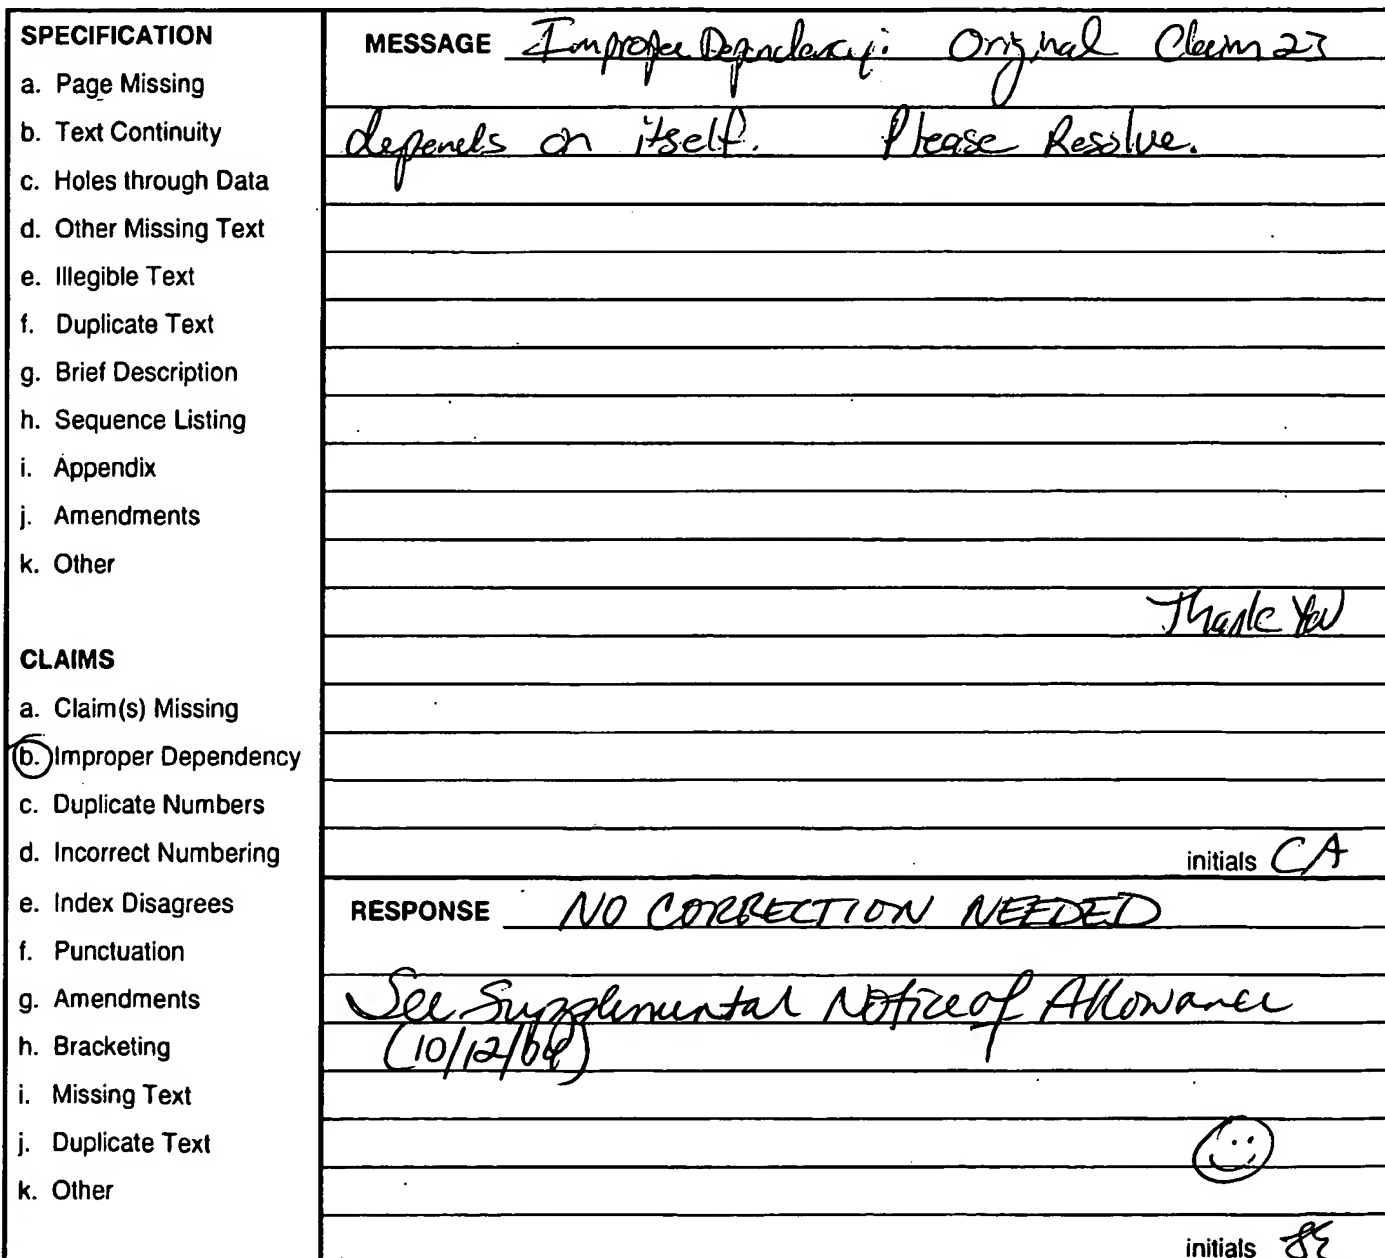 SPECIFICATION
a. Page Missing
b. Text Continuity
c. Holes through Data
d. Other Missing Text
e. Illegible Text
f. Duplicate Text
g. Brief Description
h. Sequence Listing
i. Appendix
j. Amendments
k. Other
CLAIMS
a. Claim(s) Missing
b. Improper Dependency
c. Duplicate Numbers
d. Incorrect Numbering
e. Index Disagrees
f. Punctuation
g. Amendments
h. Bracketing
i. Missing Text
j. Duplicate Text
k. Other
MESSAGE Improper Dependency: Original Claim 23
depends on itself. Please Resolve.
Thank You
initials CA
RESPONSE NO CORRECTION NEEDED
See Supplemental Notice of Allowance
(10/12/04)
initials